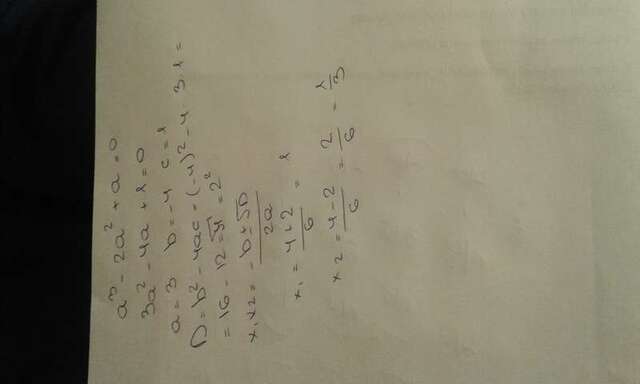 a³ - 2a² + a = 0
3a² - 4a + 1 = 0
a = 3 b = -4 c = 1
D = b² - 4ac = (-4)² - 4 · 3 · 1 =
= 16 - 12 = 4 = 2²
x₁,x₂ = -b ± √D / 2a
x₁ = 4+2 / 6 = 1
x₂ = 4-2 / 6 = 2/6 = 1/3